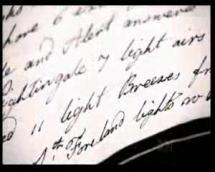 have 6
and Alert answered
Nightingale 7 light airs
11 light Breezes fr
Foreland lights